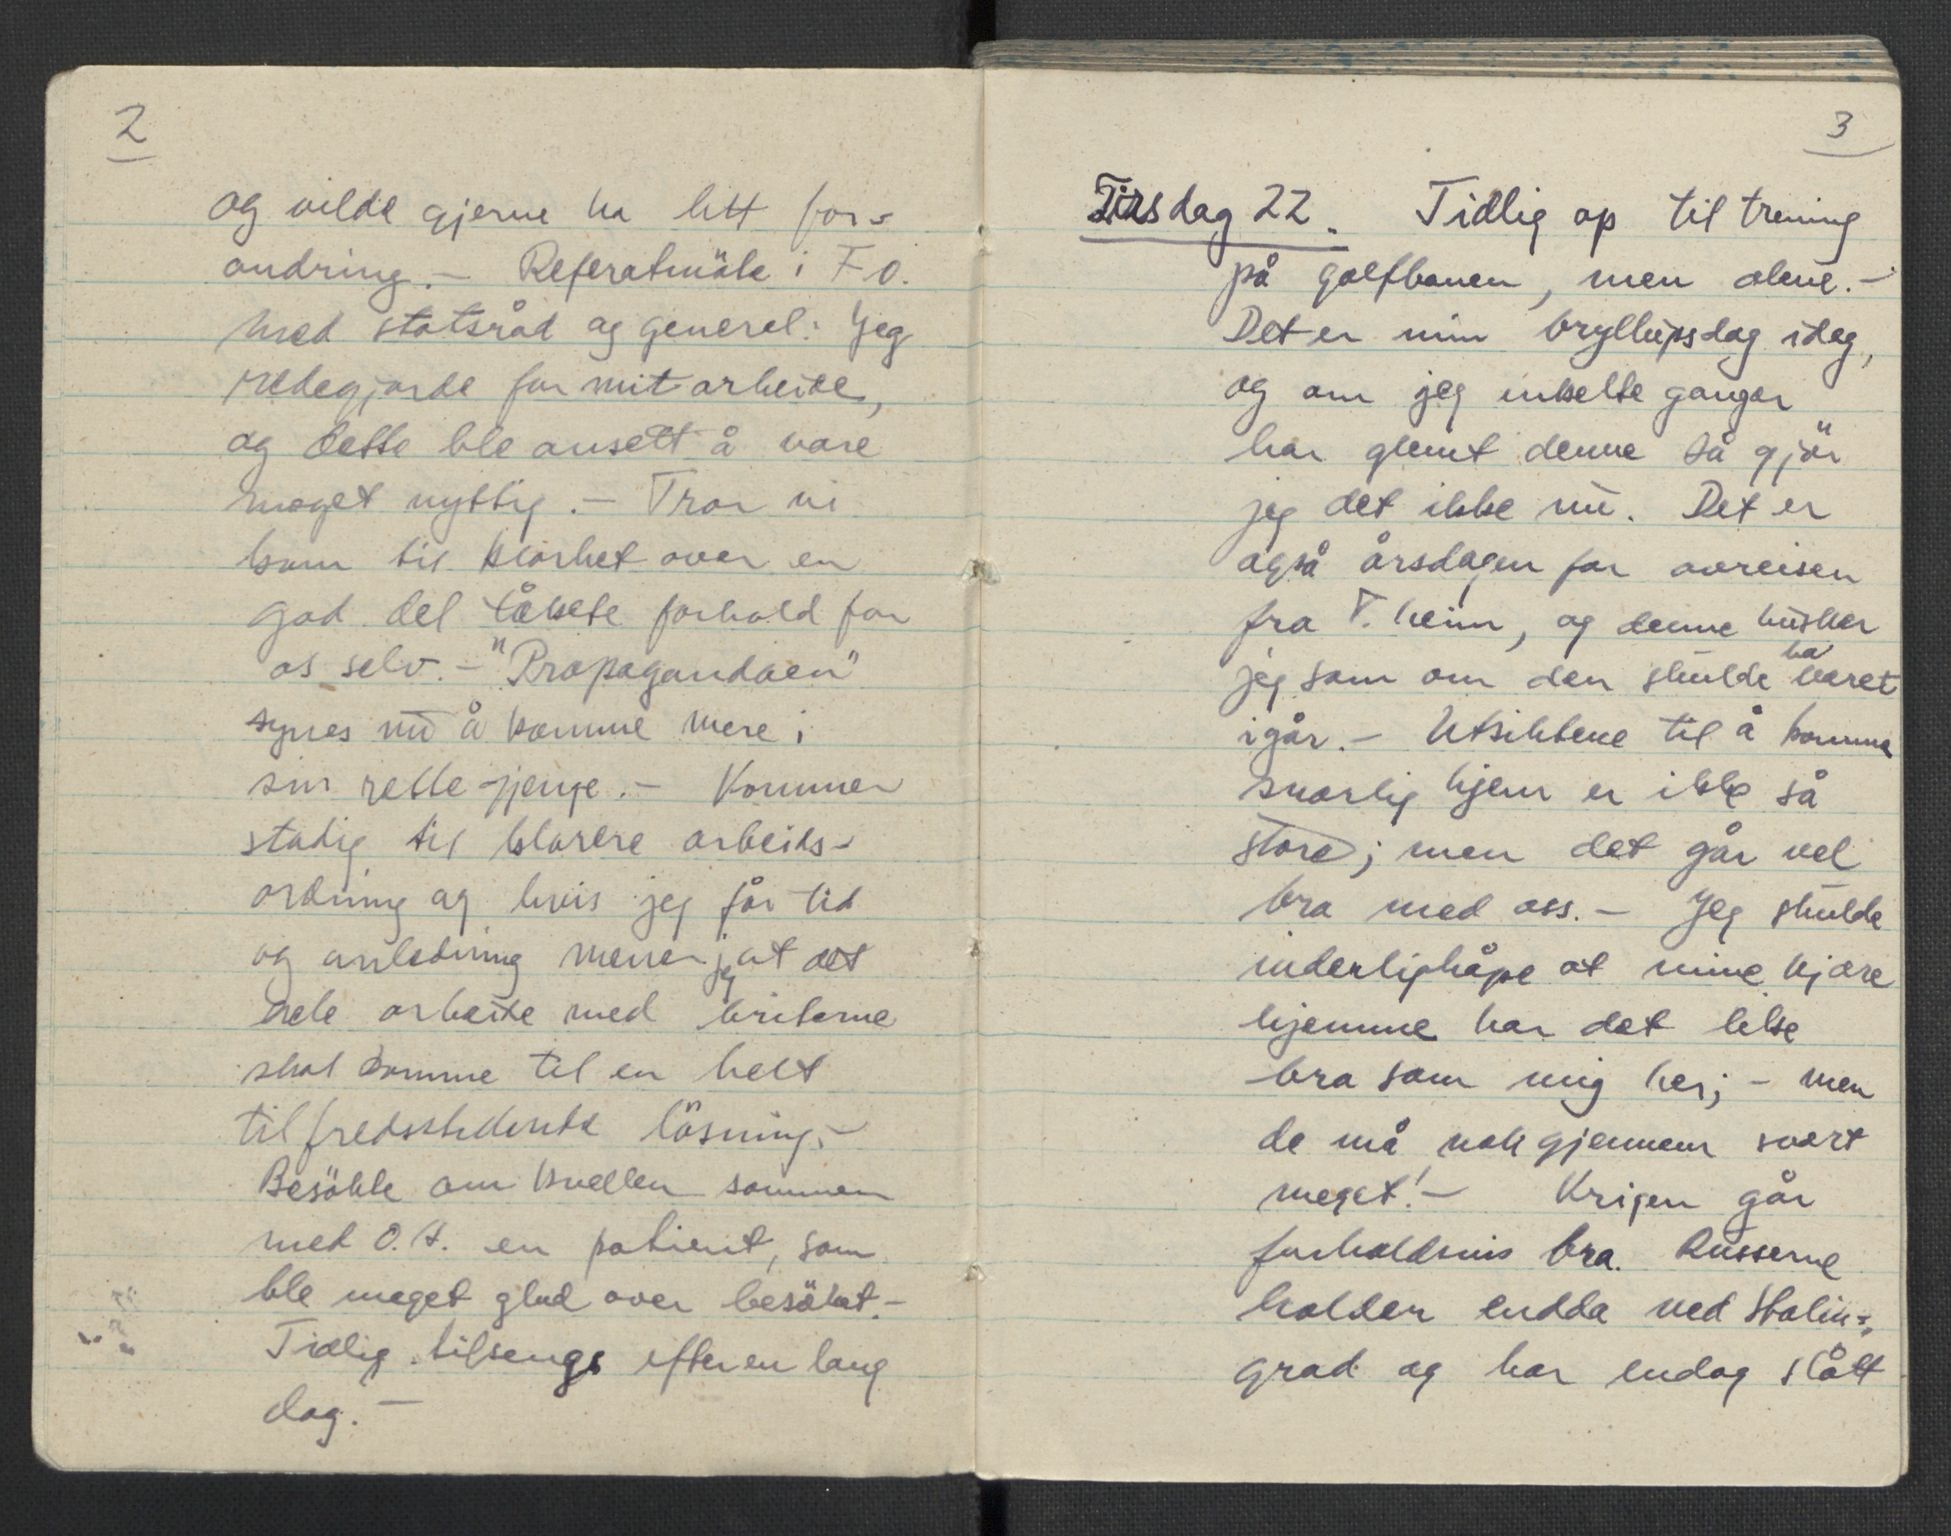 2
og vilde gjerne ha litt for-
andring. – Referatmöte i F.O.
med statsråd og general: Jeg
redegjorde for mit arbeide,
og dette ble ansett å være
meget nyttig. – Tror vi
kom til klarhet over en
god del tåkete forhold for
os selv. – "Propagandaen"
synes nū å komme mere i
sin rette gjenge. – Kommer
stadig til klarere arbeids-
ordning og hvis jeg får tid
og anledning mener jeg at det
hele arbeide med briterne
skal komme til en helt
tilfredsstedende lösning. –
Besökte om kvellen sammen
med O.H. en patient, som
ble meget glad over besöket. –
Tidlig tilsengs efter en lang
dag. –
3
Tirsdag 22. Tidlig op til trening
på golfbanen, men alene. –
Det er min bryllūpsdag idag,
og om jeg enkelte ganger
har glemt denne så gjör
jeg det ikke nū. Det er
også årsdagen for avreisen
fra T.heim, og denne hūsker
jeg som om den skūlde ha været
igår. – Utsiktene til å komme
snarlig hjem er ikke så
store; men det går vel
bra med oss. – Jeg skūlde
inderlig håpe at mine kjære
hjemme har det like
bra som mig her; – men
de må nok gjennem svært
meget! – Krigen går
forholdsvis bra. Rūsserne
holder endda ved Stalin-
grad og har endog slått